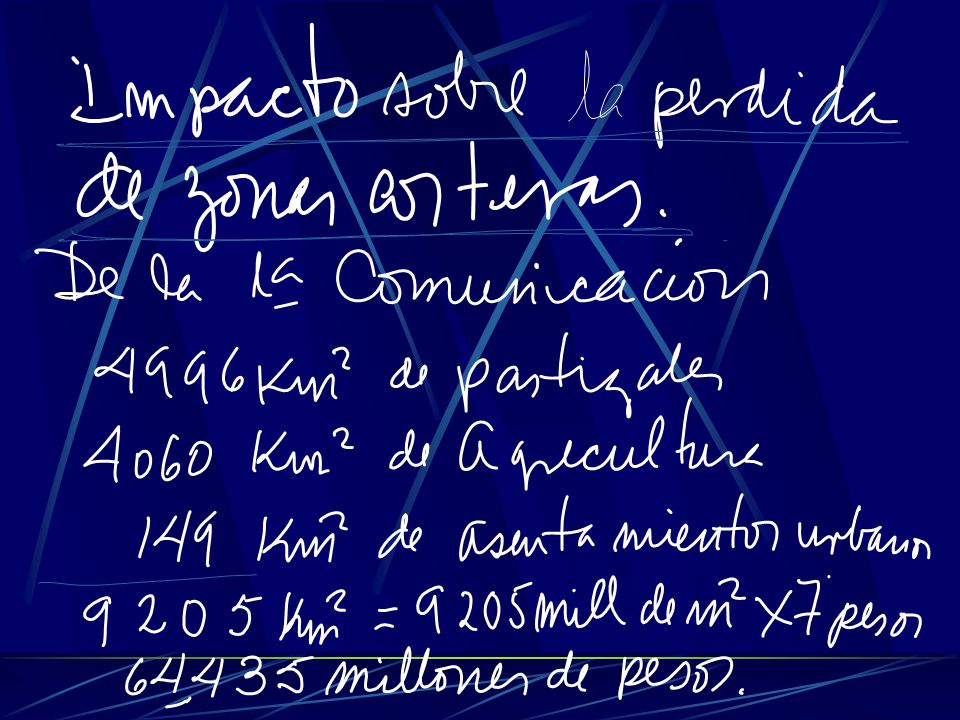 Impacto sobre la perdida
de zonas costeras.
De la 1a Comunicación
4996 Km² de pastizales
4060 Km² de Agricultura
149 Km² de asentamientos urbanos
9205 Km² = 9205 mill de m² x 7 pesos
64,435 millones de pesos.